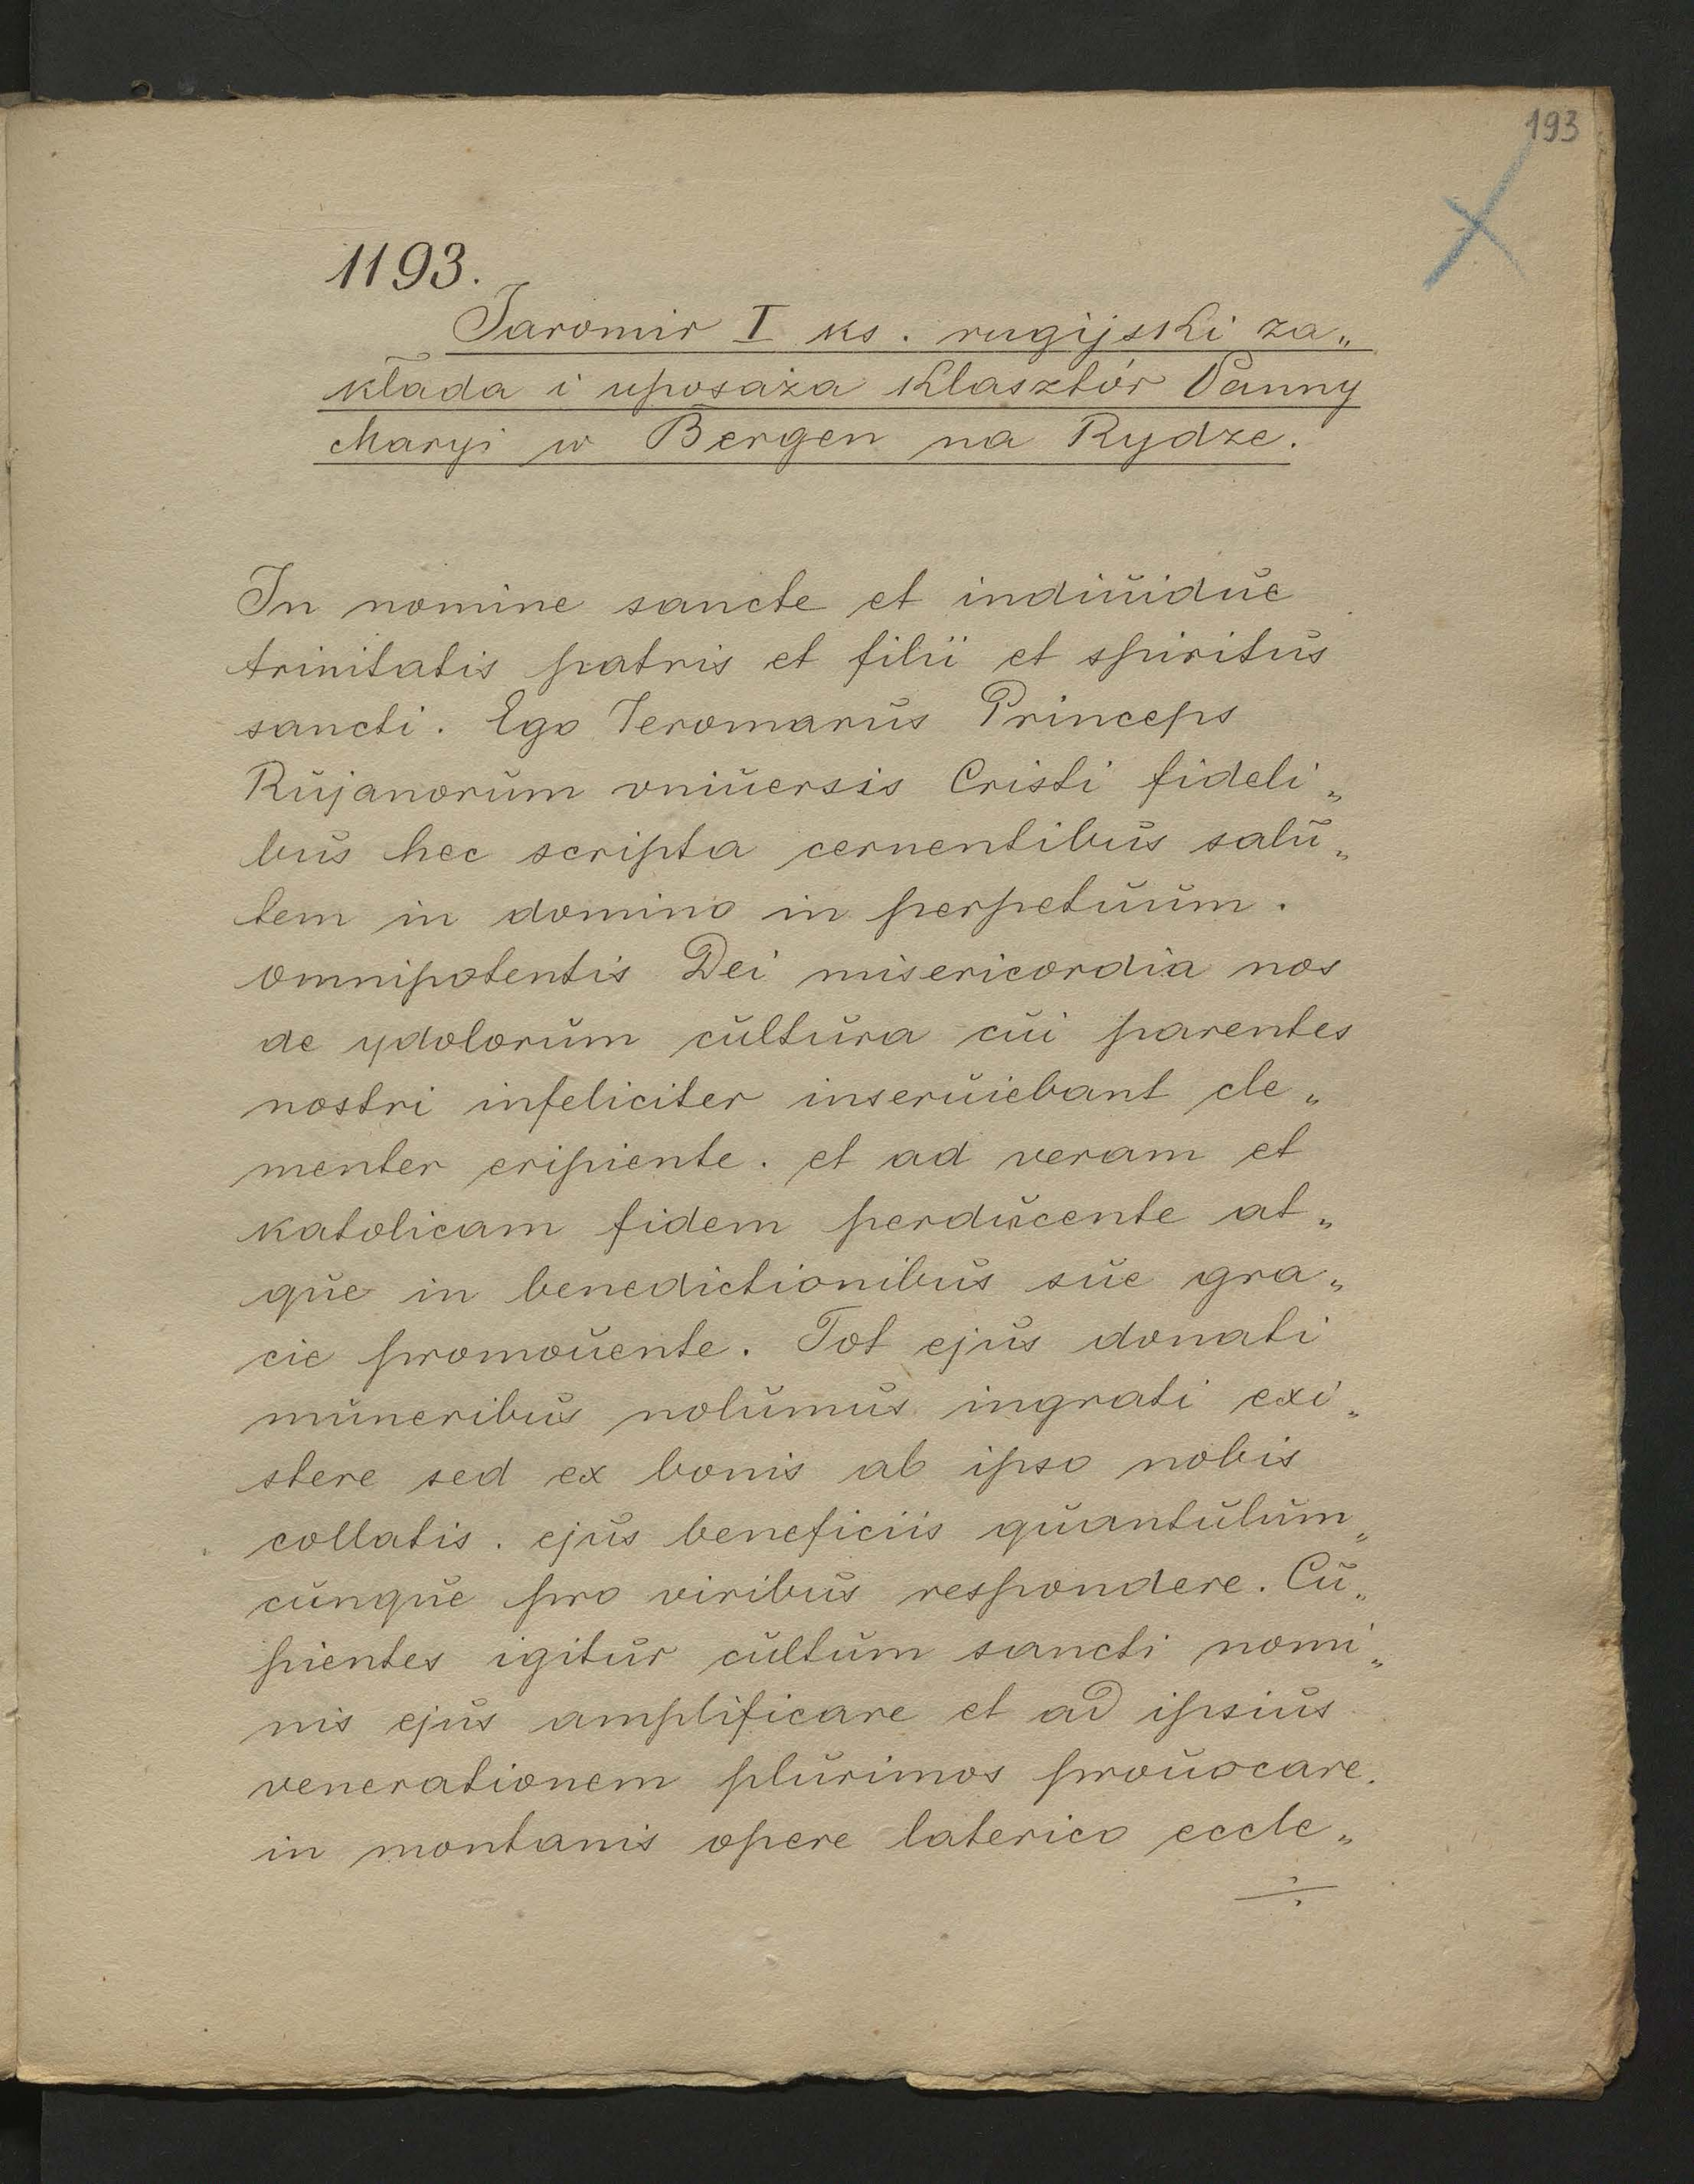 193
1193.
Jaromir I ks. rugijski za„
kłada i uposaża Klasztór Panny
Maryi w Bergen na Rydze.
In nomine sancte et indiuidue
trinitatis patris et filii et spiritus
sancti. Ego Jeromarus Princeps
Rujanorum vniuersis Cristi fideli„
bus hec scripta cernentibus salu„
tem in domino in perpetuum.
omnipotentis Dei misericordia nos
de ydolorum cultura cui parentes
nostri infeliciter inseruiebant cle„
menter eripiente. et ad veram et
katolicam fidem perducente at„
que in benedictionibus sue gra„
cie promouente. Tot ejus donati
muneribus nolumus ingrati exi„
stere sed ex bonis ab ipso nobis
collatis. ejus beneficiis quantulum„
cunque pro viribus respondere. Cu„
pientes igitur cultum sancti nomi„
nis ejus amplificare et ad ipsius
venerationem plurimos prouocare.
in montanis opere laterico eccle„
÷